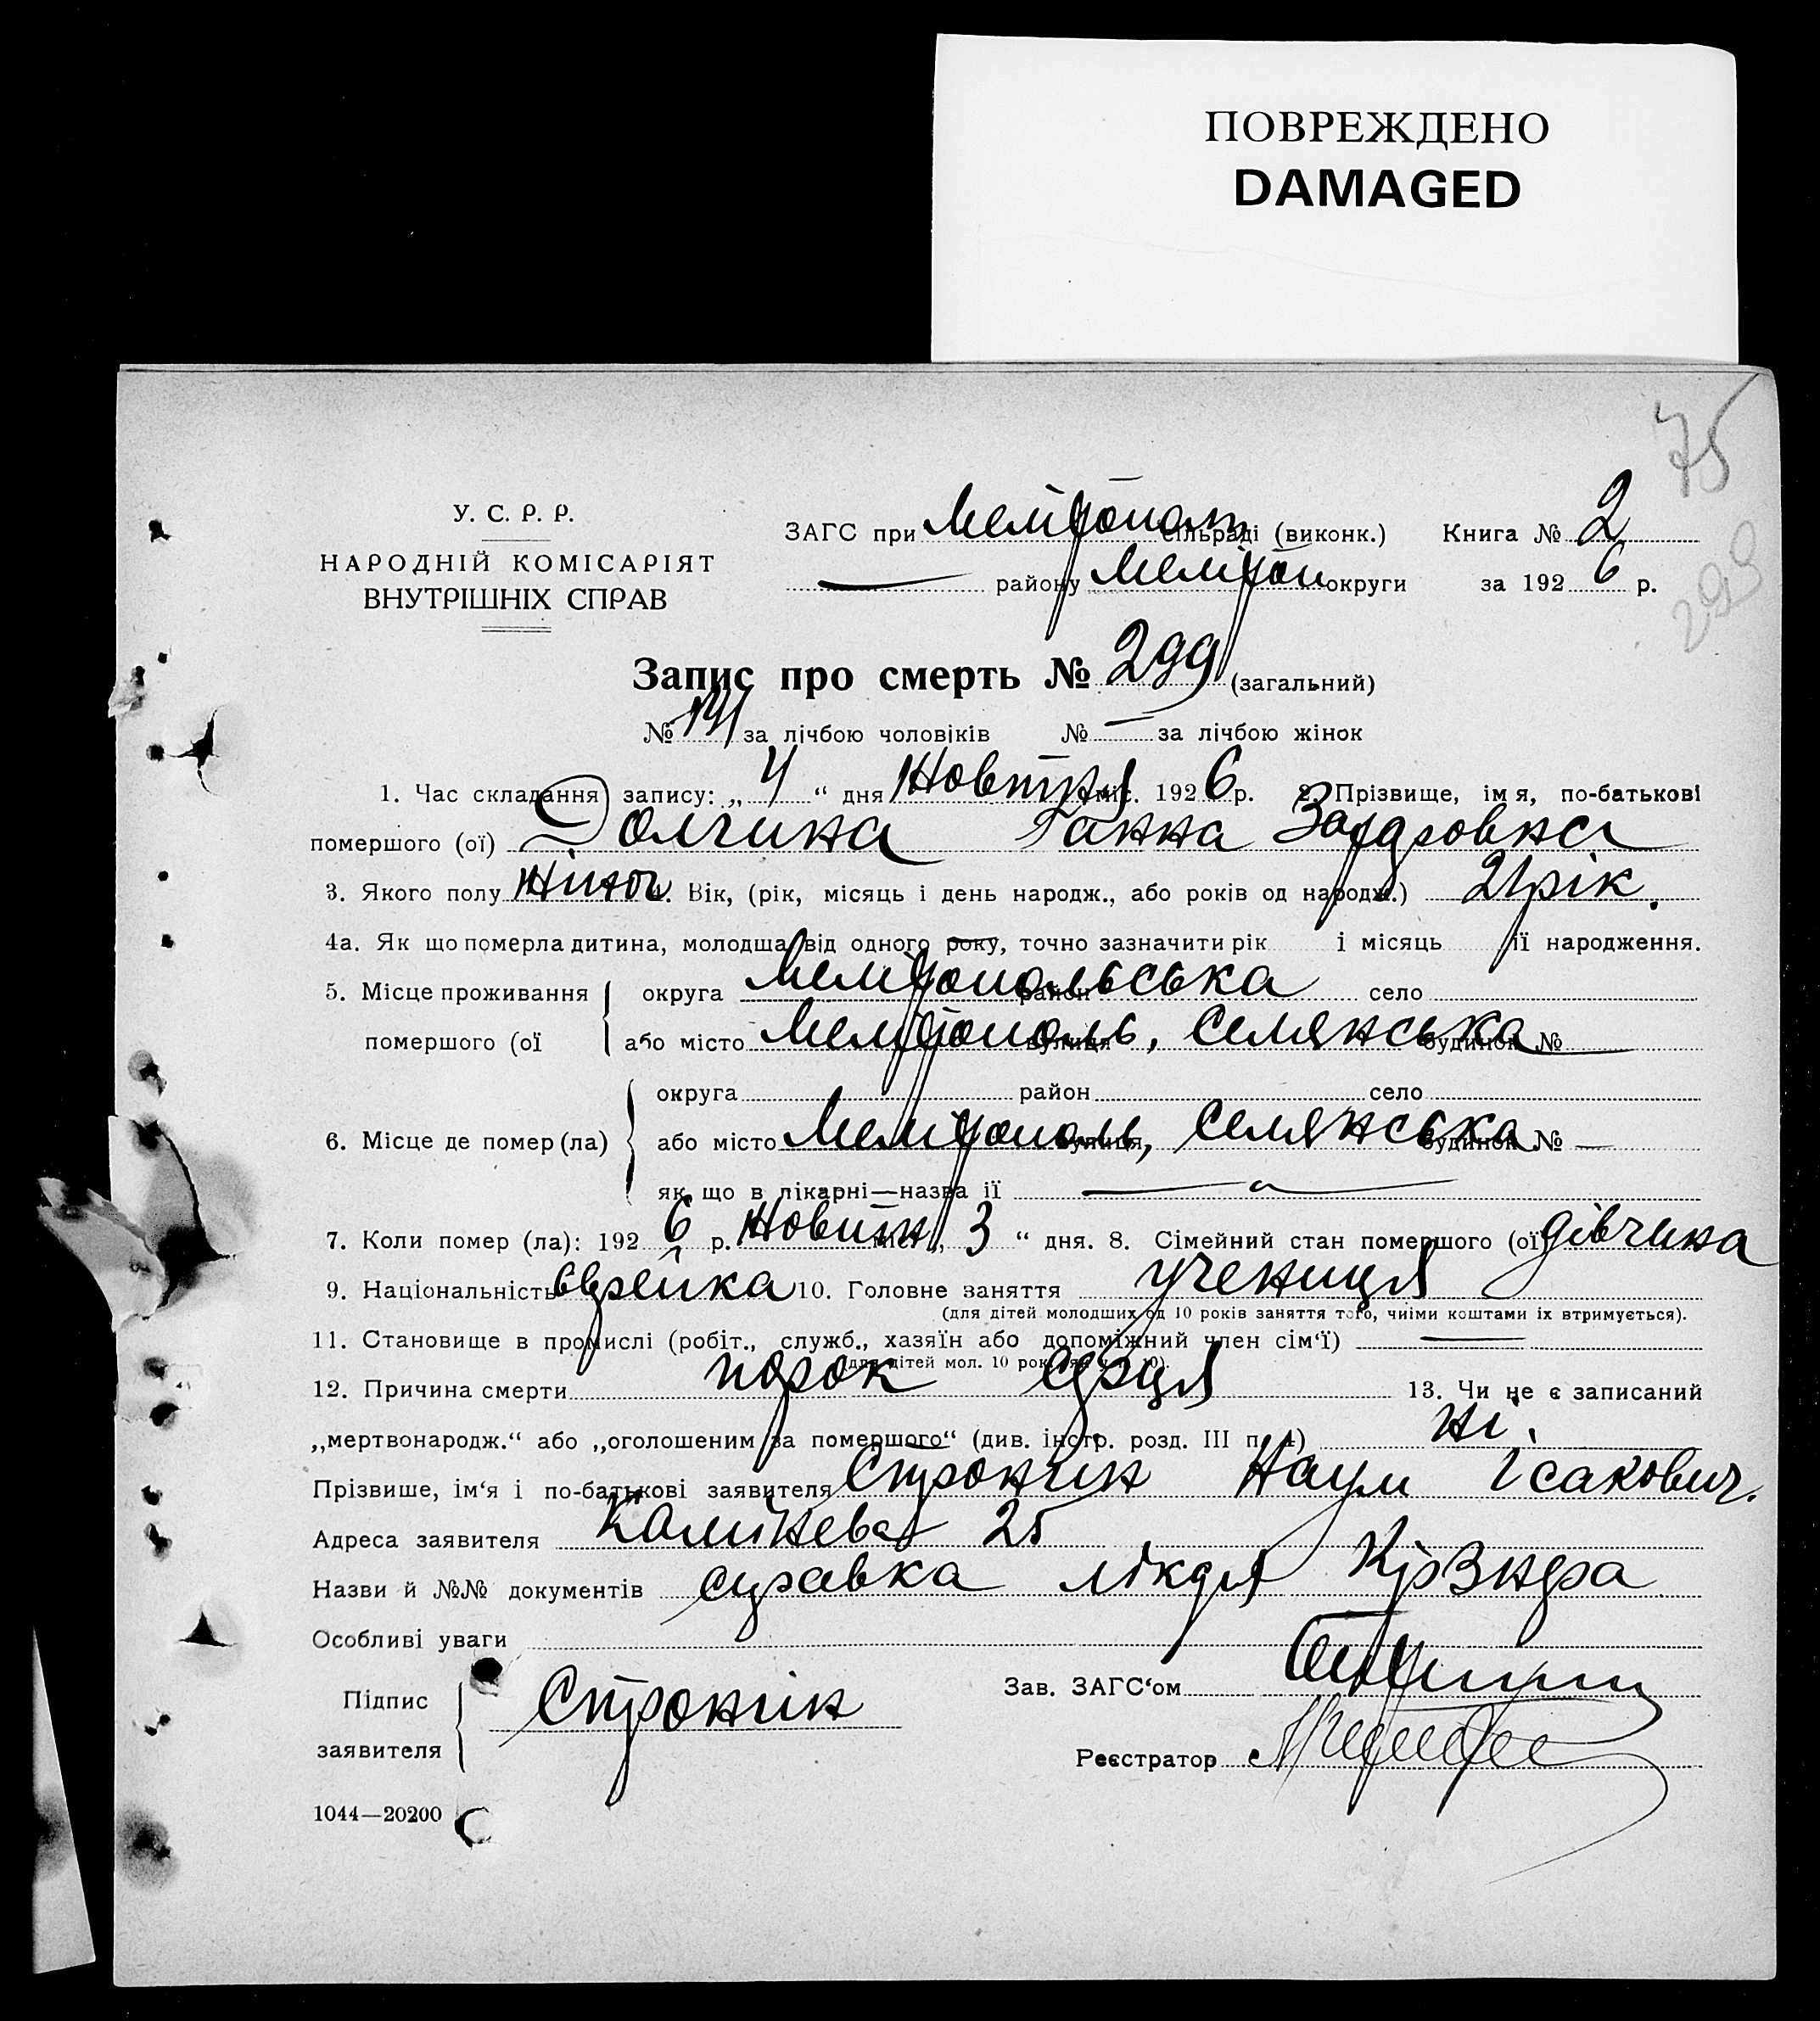 ПОВРЕЖДЕНО
DAMAGED
75
299
У. С. Р. Р.
НАРОДНІЙ КОМІСАРІЯТ
ВНУТРІШНІХ СПРАВ
ЗАГС при Мелітопол сільраді (виконк.) Книга № 2
— району Мелітоп округи за 1926 р.
Запис про смерть № 299 (загальний)
№ 141 за лічбою чоловіків № — за лічбою жінок
1. Час складання запису: „ 4 “ дня Жовтня міс. 1926 р. 2. Прізвище, імя, по-батькові
помершого (ої) Долгина Ганна
3. Якого полу жіноч 4. Вік, (рік, місяць і день народж., або років од народж.) 21 рік.
4а. Як що померла дитина, молодша від одного року, точно зазначити рік і місяць її народження.
5. Місце проживання округа Мелітопольська район село
помершого (ої або місто Мелітополь, вулиця Селянська будинок № —
округа район село
6. Місце де помер (ла) або місто Мелітополь, вулиця Селянська будинок № —
як що в лікарні—назва її —
7. Коли помер (ла): 1926 р. Жовтн міся „ 3 “ дня. 8. Сімейний стан помершого (ої) дівчина
9. Національність Єврейка 10. Головне заняття учениця
(для дітей молодших од 10 років заняття того, чиіми коштами іх втримується).
11. Становище в промислі (робіт., служб., хазяїн або допоміжний член сім‘ї) —
(для дітей мол. 10 рок. як у п. 10).
12. Причина смерти порок серця 13. Чи не є записаний
„мертвонародж.“ або „оголошеним за помершого“ (див. інстр. розд. III п. 4) ні.
Прізвише, ім‘я і по-батькові заявителя Стронгін Наум Ісакович.
Адреса заявителя Камінева 25
Назви й №№ документів справка лікаря
Особливі уваги
Підпис
заявителя
Стронгін
Зав. ЗАГС‘ом
Реєстратор
1044—20200